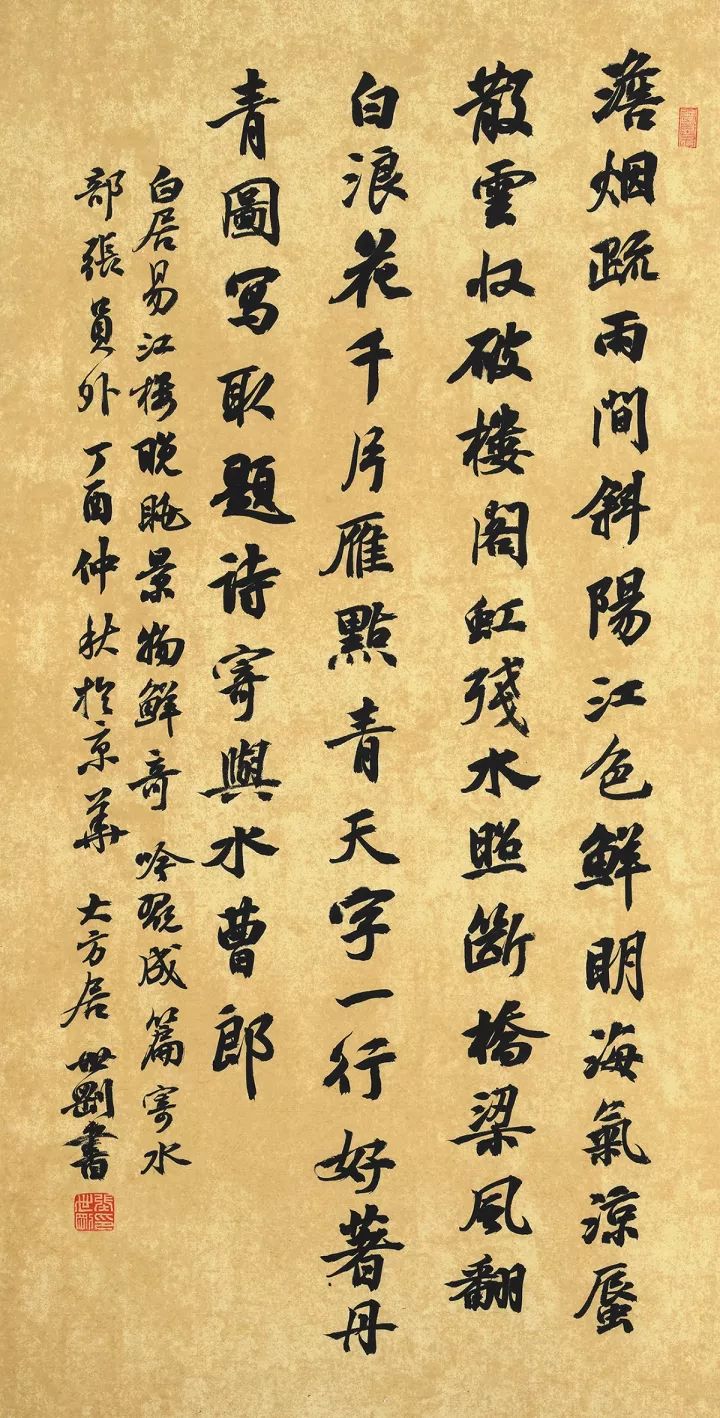 澹烟疏雨間斜陽江色鮮明海氣涼蜃
散雲收破樓閣虹殘水照斷橋梁風翻
白浪花千片雁點青天字一行好著丹
青圖寫取題詩寄與水曹郎
白居易江樓晚眺景物鮮奇吟翫成篇寄水
部張員外丁酉仲秋於京華 大方居世剛書